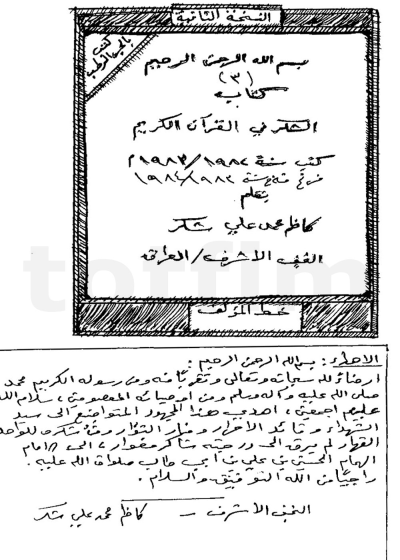 النسخة الثانية
كتب
بالحبر الرطب
بسم الله الرحمن الرحيم
(٣)
كتاب
الشكر في القرآن الكريم
كتب سنة ١٩٨٢/١٩٨٣م
سنة ١٩٨٣/١٩٨٤
بقلم
كاظم محمد علي شكر
النجف الاشرف/العراق
خط المؤلف
torfim
الاهداء: بسم الله الرحمن الرحيم:
ارضاءً لله سبحانه وتعالى وتقرباً منه ومن رسوله الكريم محمد
صلى الله عليه وآله وسلم ومن اوصيائه المعصومين، سلام الله
عليهم اجمعين، اهدي هذا المجهود المتواضع الى سيد
الشهداء وقائد الاحرار ومنار الثوار شكره للواحد
القهار لم يرق الى درجته شاكر مغوار، الى الامام
الهمام الحسين بن علي بن ابي طالب صلوات الله عليه.
راجياً من الله التوفيق والسلام.
النجف الاشرف - كاظم محمد علي شكر